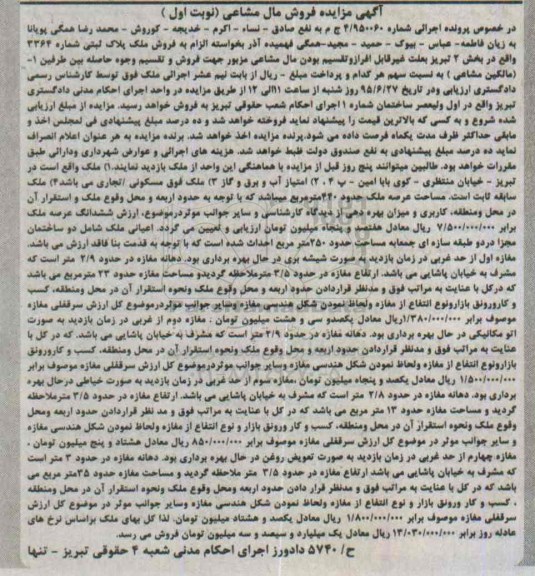 آگهی مزایده فروش مال مشاعی (نوبت اول )
در خصوص پرونده اجرائی شماره ۴/۹۵۰۰۶۰ ج م به نفع صادق - نساء - اکرم - خدیجه - کوروش - محمد رضا همگی پویانا
به زیان فاطمه- عباس - بیوک - حمید - مجید-همگی فهمیده آذر بخواسته الزام به فروش ملک پلاک ثبتی شماره ۳۳۶۴
واقع در بخش ۲ تبریز بعلت غیرقابل افرازوتقسیم بودن مال مشاعی مزبور جهت فروش و تقسیم وجوه حاصله بین طرفین
(مالکین مشاعی ) به نسبت سهم هر کدام و پرداخت مبلغ - ریال از بابت نیم عشر اجرائی ملک فوق توسط کارشناس رسمی
دادگستری ارزیابی ودر تاریخ ۹۵/۶/۲۷ روز شنبه از ساعت ۱۱الی ۱۲ از طریق مزایده در واحد اجرای احکام مدنی دادگستری
تبریز واقع در اول ولیعصر ساختمان شماره ۱ اجرای احکام شعب حقوقی تبریز به فروش خواهد رسید. مزایده از مبلغ ارزیابی
شده شروع و به کسی که بالاترین قیمت را پیشنهاد نماید فروخته خواهد شد و ده درصد مبلغ پیشنهادی فی لمجلس اخذ و
مابقی حداکثر ظرف مدت یکماه فرصت داده می شود.پرنده مزایده اخذ خواهد شد. برنده مزایده به هر عنوان اعلام انصراف
نماید ده درصد مبلغ پیشنهادی به نفع صندوق دولت ظبط خواهد شد. هزینه های اجرائی و عوارض شهرداری ودارائی طبق
مقررات خواهد بود. طالبین میتوانند پنج روز قبل از مزایده با هماهنگی این واحد از ملک بازدید نمایند.۱) ملک واقع است در
تبریز - خیابان منتظری - کوی بابا امین - پ ۲۰۴) امتیاز آب و برق و گاز ۳) ملک فوق مسکونی /تجاری می باشد۴) ملک
سابقه ثبت است. مساحت عرصه ملک در حدود مترمربع میباشد که با توجه به حدود اربعه و محل وقوع ملک و استقرار آن
در محل ومنطقه، کاربری و میزان بهره دهی از دیدگاه کارشناسی و سایر جوانب موثردرموضوع، ارزش ششدانگ عرصه ملک
برابر ۷/۵۰۰/۰۰۰/۰۰۰ ریال معادل هفتصد و پنجاه میلیون تومان ارزیابی و تعیین می گردد. اعیانی ملک شامل دو ساختمان
مجزا دردو طبقه سازه ای جمعابه مساحت حدود ۲۵۰متر مربع احداث شده است که با توجه به قدمت بنا فاقد ارزش می باشد.
مغازه اول از حد غربی در زمان بازدید به صورت شیشه بری در حال بهره برداری بود. دهانه مغازه در حدود ۲/۹ متر است که
مشرف به خیابان پاشایی می باشد. ارتفاع مغازه در حدود ۳/۵ مترملاحظه گردیدو مساحت مغازه حدود ۲۳ مترمربع می باشد
که درکل با عنایت به مراتب فوق و مدنظر قراردادن حدود اربعه و محل وقوع ملک ونحوه استقرار آن در محل ومنطقه، کسب
و کارورونق بازارونوع التفاع از مغازه ولحاظ نمودن شکل هندسی مغازه وسایر جوانب موثردرموضوع کل ارزش سرقفلی مغازه
موصوف برابر ۱/۳۸۰/۰۰۰/۰۰۰ریال معادل یکصدو سی و هشت میلیون تومان . مغازه دوم از غربی در زمان بازدید به صورت
اتو مکانیکی در حال بهره برداری بود. دهانه مغازه در حدود ۳/۹ متر است که مشرف به خیابان پاشایی می باشد. که در کل با
عنایت به مراتب فوق و مدنظر قراردادن حدود اربعه و محل وقوع ملک ونحوه استقرار آن در محل ومنطقه، کسب و کارورونق
بازارونوع انتفاع از مغازه ولحاظ نمودن شکل هندسی مغازه وسایر جوانب موثردرموضوع کل ارزش سرقفلی مغازه موصوف برابر
۱/۵۰۰/۰۰۰/۰۰۰ ریال معادل یکصد و پنجاه میلیون تومان .مغازه سوم از حد غربی در زمان بازدید به صورت خیاطی درحال بهره
برداری بود. دهانه مغازه در حدود ۲/۸ متر است که مشرف به خیابان پاشایی می باشد. ارتفاع مغازه در حدود ۳/۵ مترملاحظه
گردید و مساحت مغازه حدود ۱۳ متر مربع می باشد که در کل با عنایت به مراتب فوق و مد نظر قراردادن حدود اربعه ومحل
وقوع ملک ونحوه استقرار آن در محل ومنطقه، کسب و کار ورونق بازار و نوع انتفاع از مغازه ولحاظ نمودن شکل هندسی مغازه
و سایر جوانب موثر در موضوع کل ارزش سرقفلی مغازه موصوف برابر ۸۵۰/۰۰۰/۰۰۰ ریال معادل هشتاد و پنج میلیون تومان .
مغازه چهارم از حد غربی در زمان بازدید به صورت تعویض روغن در حال بهره برداری بود. دهانه مغازه در حدود ۳ متر است
که مشرف به خیابان پاشایی می باشد ارتفاع مغازه در حدود ۳/۵ متر ملاحظه گردید و مساحت مغازه حدود ۳۵متر مربع می
باشد که در کل با عنایت به مراتب فوق و مدنظر قرار دادن حدود اربعه ومحل وقوع ملک ونحوه استقرار آن در محل ومنطقه
، کسب و کار ورونق بازار و نوع انتفاع از مغازه ولحاظ نمودن شکل هندسی مغازه وسایر جوانب موثر در موضوع کل ارزش
سرقفلی مغازه موصوف برابر ۱/۸۰۰/۰۰۰/۰۰۰ ریال معادل یکصد و هشتاد میلیون تومان. لذا کل بهای ملک براساس نرخ های
عادله روز برابر ۱۳/۰۳۰/۰۰۰/۰۰۰ ریال معادل یک میلیارد و سیصد و سه میلیون تومان فروش می رسد.
ح/ ۵۷۴۰ دادورز اجرای احکام مدنی شعبه ۴ حقوقی تبریز - تنها